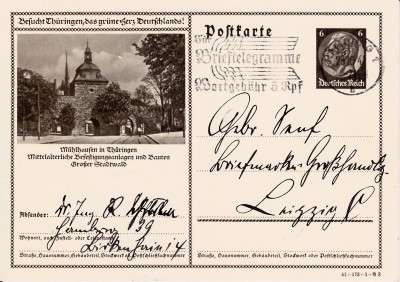 Besucht Thüringen, das grüne Herz Deutschlands!
Mühlhausen in Thüringen
Mittelalterliche Befestigungsanlagen und Bauten
Großer Stadtwald
Absender: Dr. Ing. R.
Hamburg 39
Wohnort, auch Zustell- oder
Birkenhain 4
Straße, Hausnummer, Gebäudeteil, Stockwerk od. Postschließfachnummer
Postkarte
Für
Brieftelegramme
Wortgebühr 5 Rpf
6 6
Deutsches Reich
Gebr. Senf
Briefmarken-Großhandlg.
Leipzig C
Straße, Hausnummer, Gebäudeteil, Stockwerk oder Postschließfachnummer
41-173-1-B3